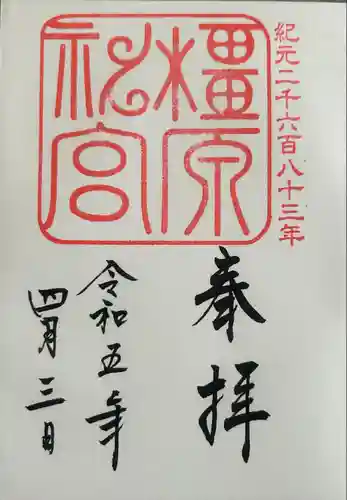 紀元二千六百八十三年
橿原
神宮
奉拝
令和五年
四月三日